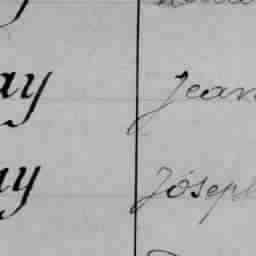 ay Jean
ay Joseph